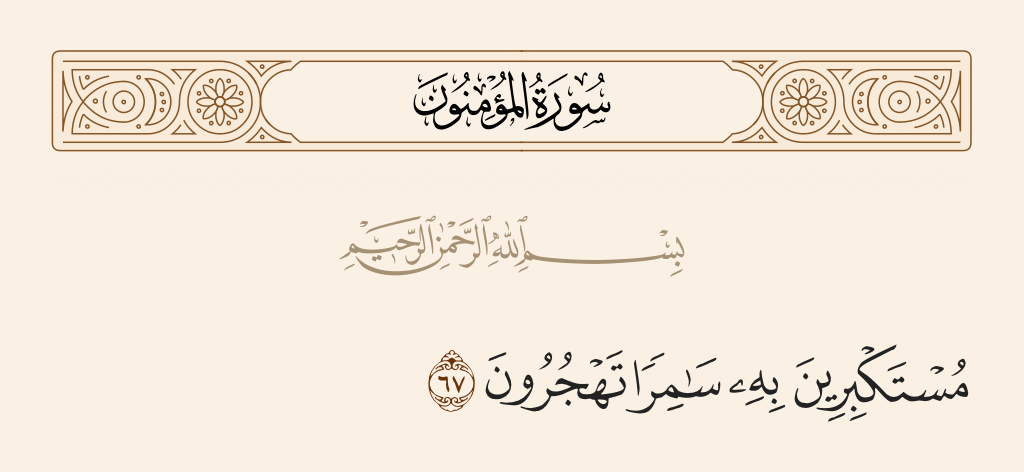 سُورَةُ المُؤْمِنُونَ
بِسْمِ ٱللَّهِ ٱلرَّحْمَٰنِ ٱلرَّحِيمِ
مُسْتَكْبِرِينَ بِهِۦ سَٰمِرًا تَهْجُرُونَ ٦٧